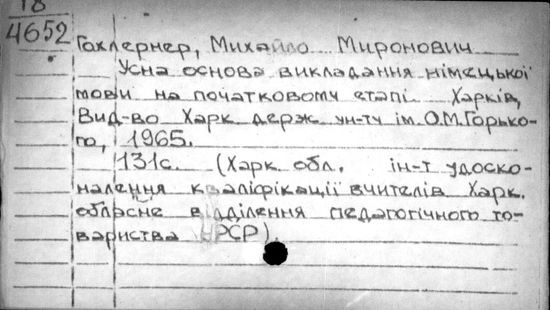 18
4652
Гохлернер, Михайло Миронович
Усна основа викладання німецької
мови на початковому етапі. Харків,
Вид-во Харк держ ун-ту ім. О.М.Горько-
го, 1965.
131с. (Харк обл. ін-т удоско-
налення кваліфікації вчителів Харк.
обласне відділення педагогічного то-
вариства УРСР)